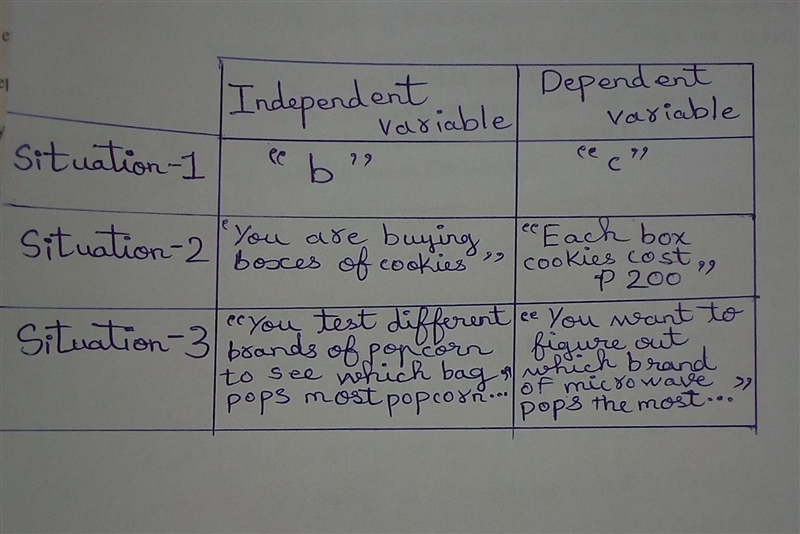 Independent
variable
Dependent
variable
Situation-1
“ b ”
“ c ”
Situation-2
‘ You are buying
boxes of cookies ”
“ Each box
cookies cost ”
₱ 200
Situation-3
“ You test different
brands of popcorn
to see which bag ”
pops most popcorn...
“ You want to
figure out
which brand
of microwave ”
pops the most...
e